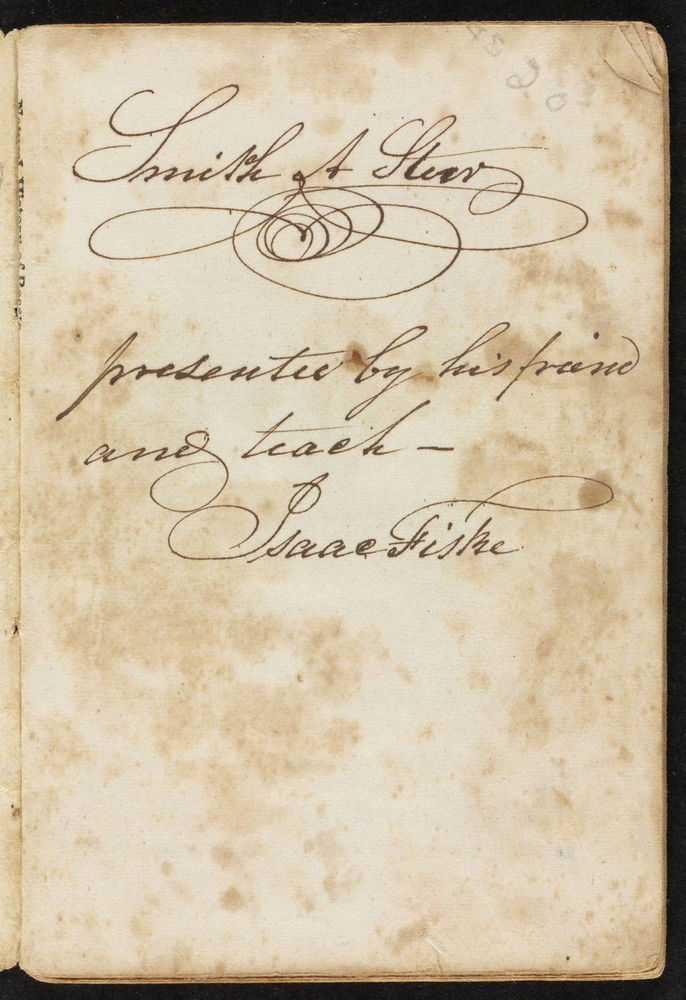 Smith A Steer
presented by his friend
and teach –
Isaac Fiske